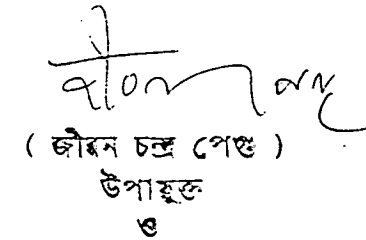 ( জীবন চন্দ্র পেগু )
উপায়ুক্ত
ও